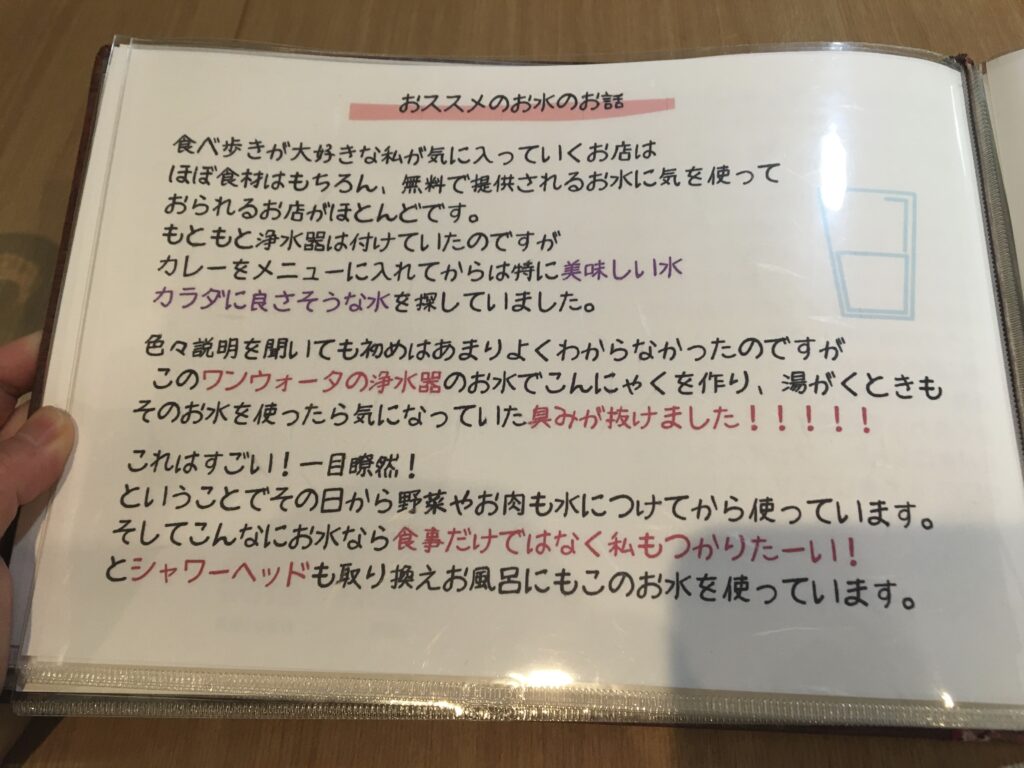 おススメのお水のお話
食べ歩きが大好きな私が気に入っていくお店は
ほぼ食材はもちろん、無料で提供されるお水に気を使って
おられるお店がほとんどです。
もともと浄水器は付けていたのですが
カレーをメニューに入れてからは特に美味しい水
カラダに良さそうな水を探していました。
色々説明を聞いても初めはあまりよくわからなかったのですが
このワンウォータの浄水器のお水でこんにゃくを作り、湯がくときも
そのお水を使ったら気になっていた臭みが抜けました！！！！！
これはすごい！一目瞭然！
ということでその日から野菜やお肉も水につけてから使っています。
そしてこんなにお水なら食事だけではなく私もつかりたーい！
とシャワーヘッドも取り換えお風呂にもこのお水を使っています。